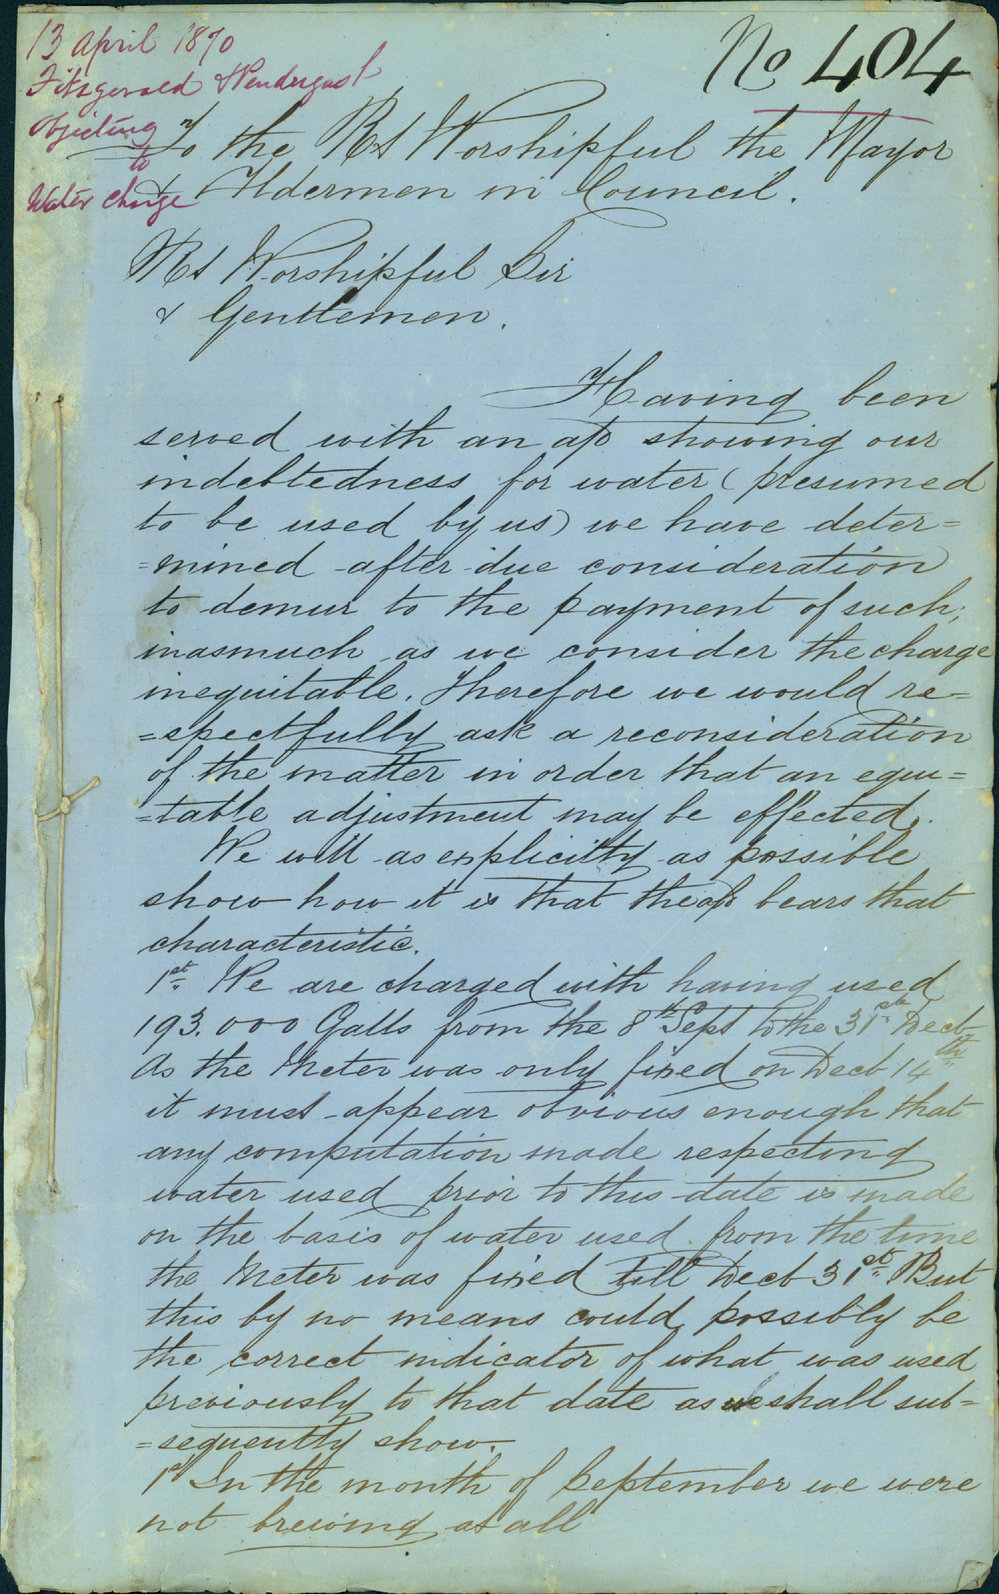 13 April 1870
Fitzgerald & Prendergast
Objecting
to
Water Charge
No 404
To the Rt Worshipful the Mayor
& Aldermen in Council.
Rt Worshipful Sir
& Gentlemen.
Having been
served with an a/c showing our
indebtedness for water (presumed
to be used by us) we have deter=
=mined after due consideration
to demur to the payment of such;
inasmuch as we consider the charge
inequitable. Therefore we would re=
=spectfully ask a reconsideration
of the matter in order that an equi=
=table adjustment may be effected.
We will as explicitly as possible
show how it is that the a/c bears that
characteristic.
1st. We are charged with having used
193.000 Galls from the 8th Sept to the 31st Decb
As the Meter was only fixed on Decb 14th
it must appear obvious enough that
any computation made respecting
water used prior to this date is made
on the basis of water used from the time
the Meter was fixed till Decb 31st. But
this by no means could possibly be
the correct indicator of what was used
previously to that date as we shall sub=
=sequently show.
1st In the month of September we were
not brewing at all